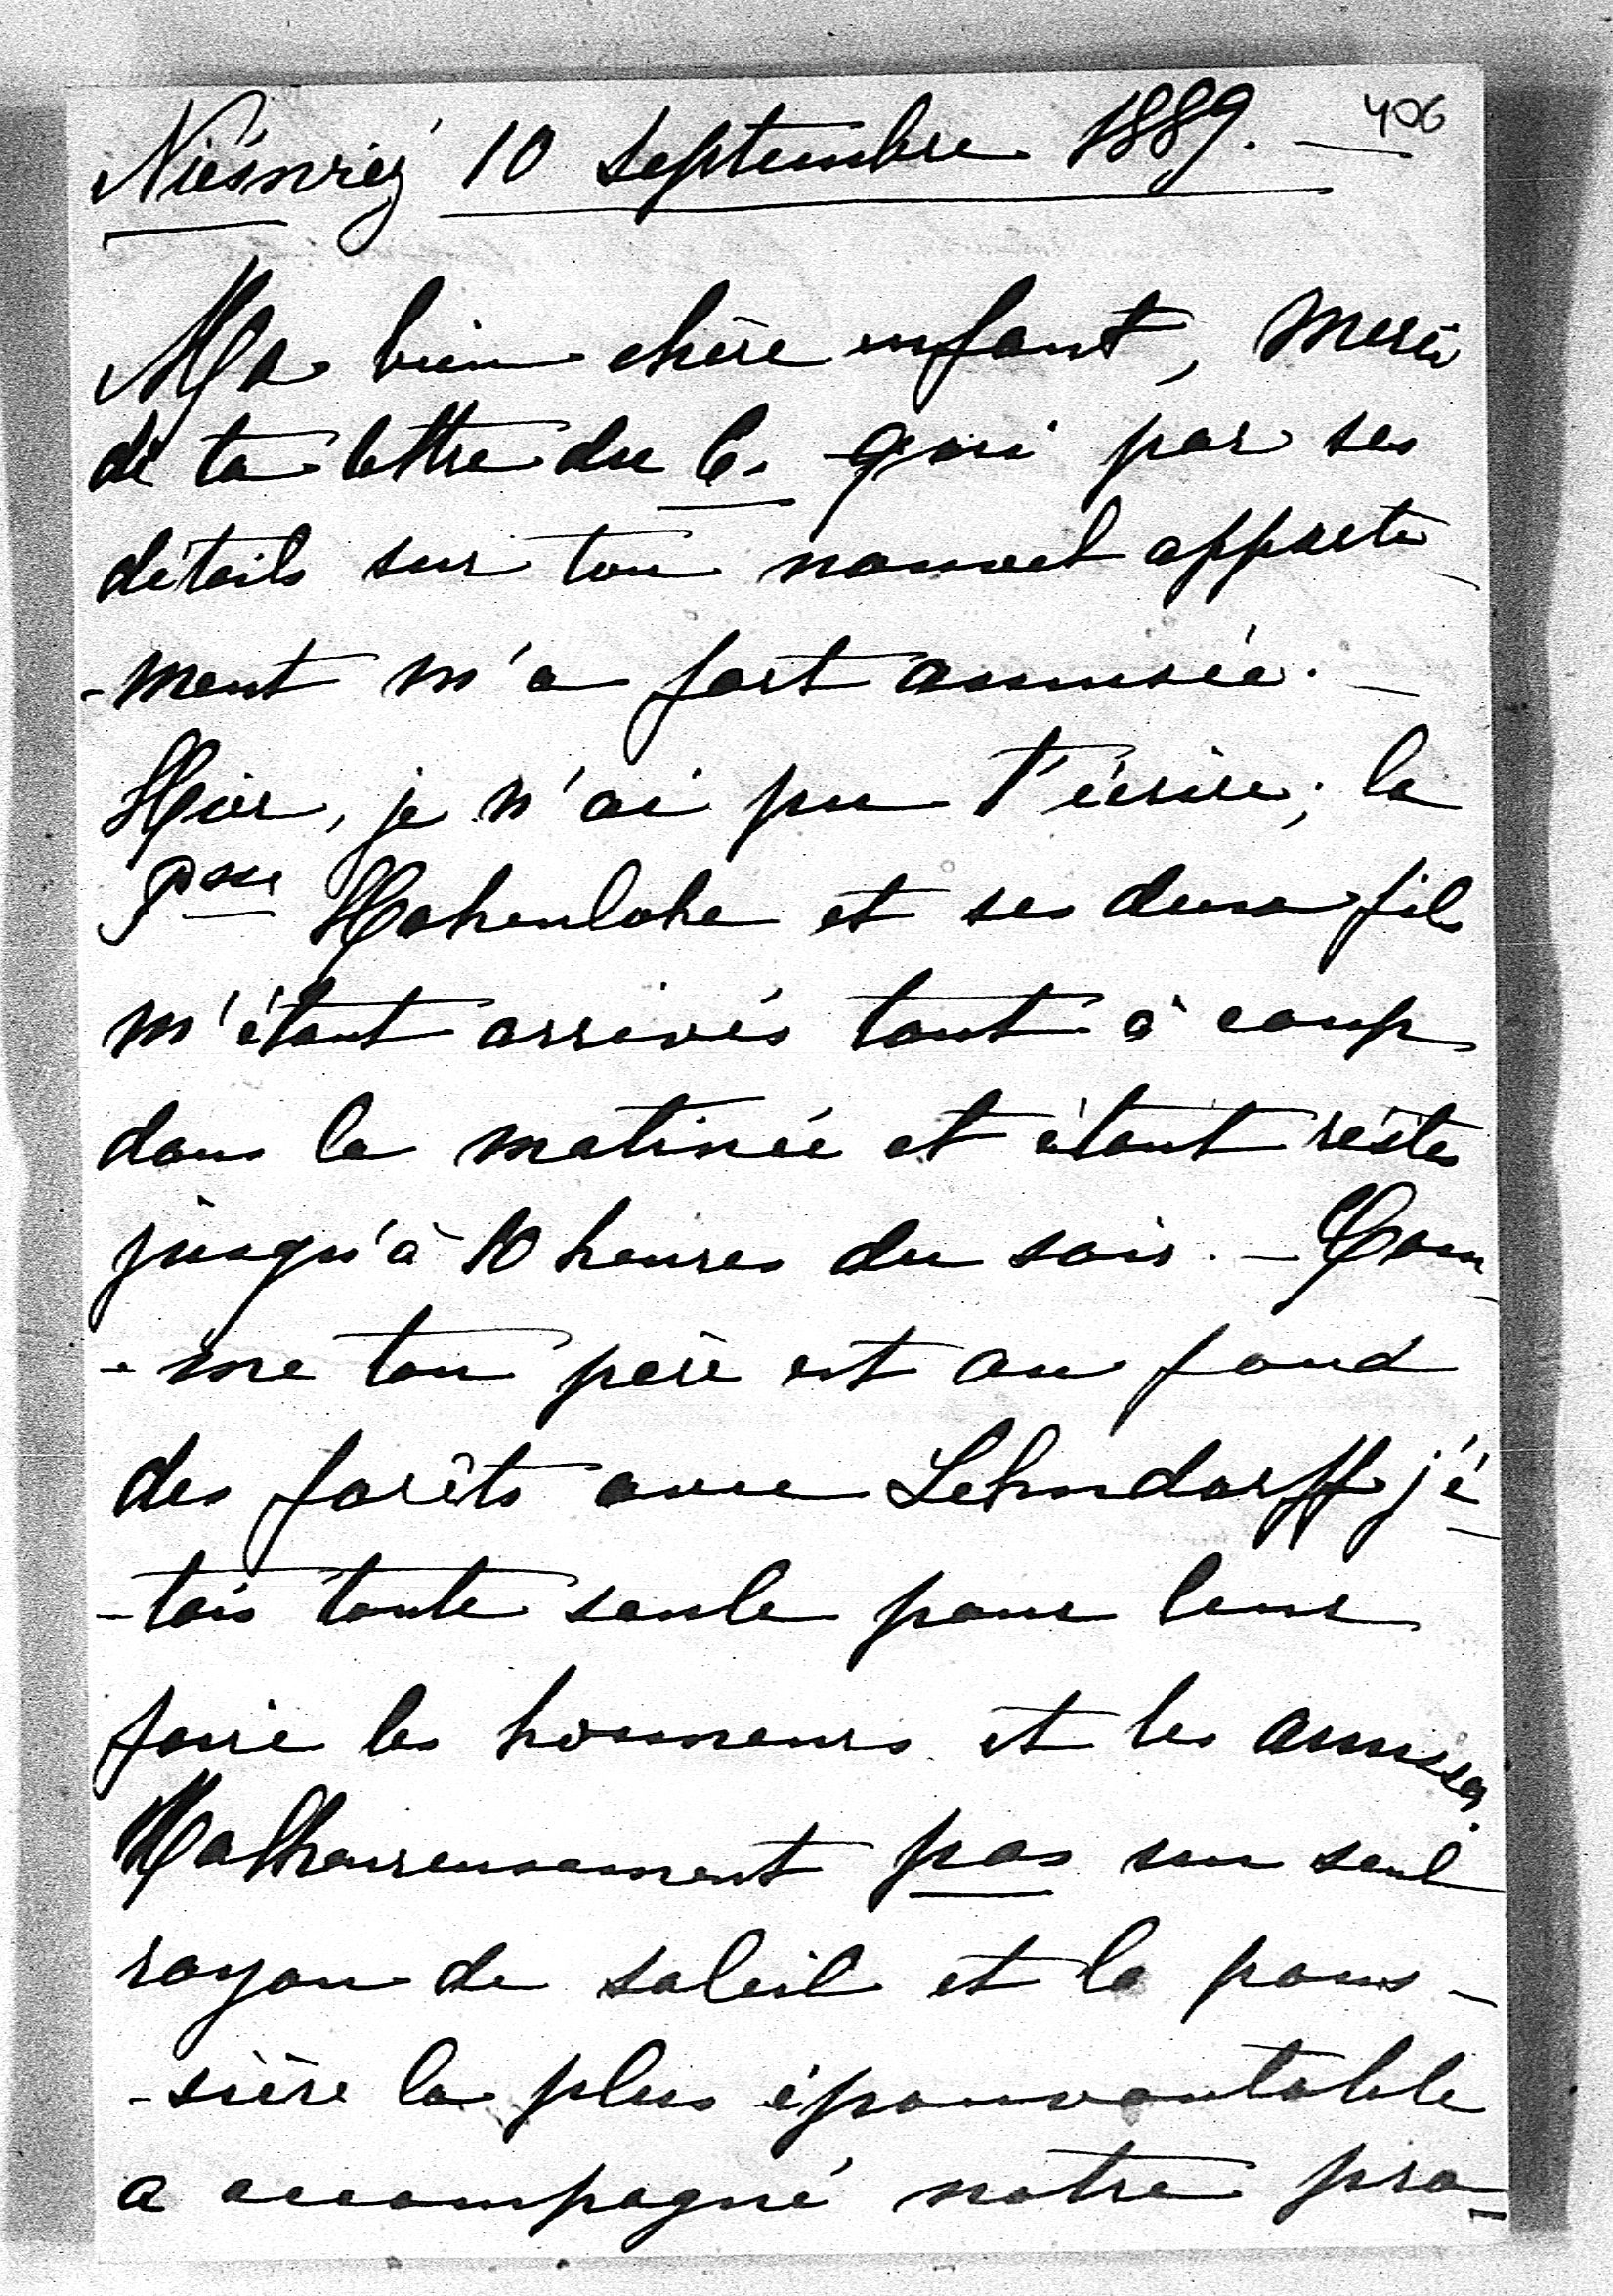 406
Niéśwież 10 Septembre 1889. —
Ma bien chère enfant, merci
de ta lettre du 6. qui par ses
détails sur ton nouvel apparte-
-ment m'a fort amusée. —
Hier, je n'ai pu t'écrire; la
Psse Hohenlohe et ses deux fils
m'étant arrivés tout à coup
dans la matinée et étant restés
jusqu'à 10 heures du soir. — Com-
-me ton père est au fond
des forêts avec Lehndorff j'é-
-tais toute seule pour leur
faire les honneurs et les amuser.
Malheureusement pas un seul
rayon de soleil et la pous-
-sière la plus épouvantable
a accompagné notre pro-